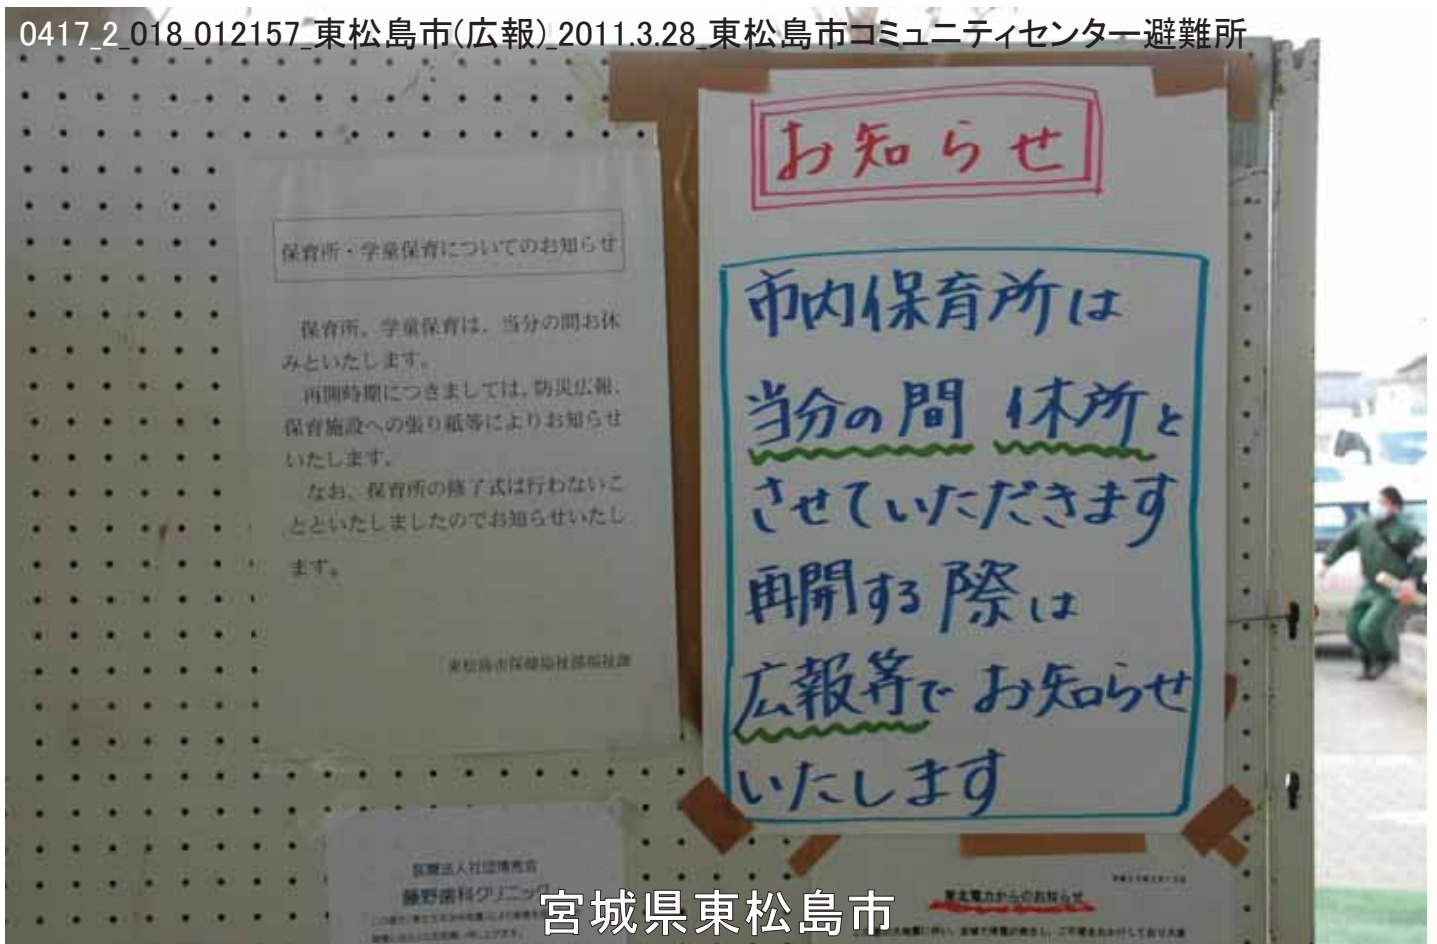 0417_2_018_012157_東松島市(広報)_2011.3.28_東松島市コミュニティセンター避難所
保育所・学童保育についてのお知らせ
保育所、学童保育は、当分の間お休
みといたします。
再開時期につきましては、防災広報、
保育施設への張り紙等によりお知らせ
いたします。
なお、保育所の修了式は行わないこ
とといたしましたのでお知らせいたし
ます。
東松島市保健福祉部福祉課
お知らせ
市内保育所は
当分の間 休所と
させていただきます
再開する際は
広報等でお知らせ
いたします
医療法人社団博秀会
藤野歯科クリニック
東北電力からのお知らせ
宮城県東松島市